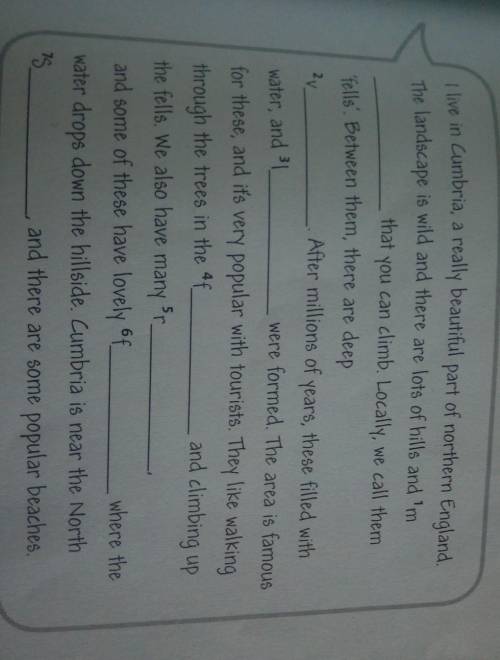 I live in Cumbria, a really beautiful part of northern England.
The landscape is wild and there are lots of hills and ¹m
__________ that you can climb. Locally, we call them
'fells'. Between them, there are deep
²v__________. After millions of years, these filled with
water, and ³l__________ were formed. The area is famous
for these, and it's very popular with tourists. They like walking
through the trees in the ⁴f__________ and climbing up
the fells. We also have many ⁵r__________,
and some of these have lovely ⁶f__________ where the
water drops down the hillside. Cumbria is near the North
⁷S__________, and there are some popular beaches.